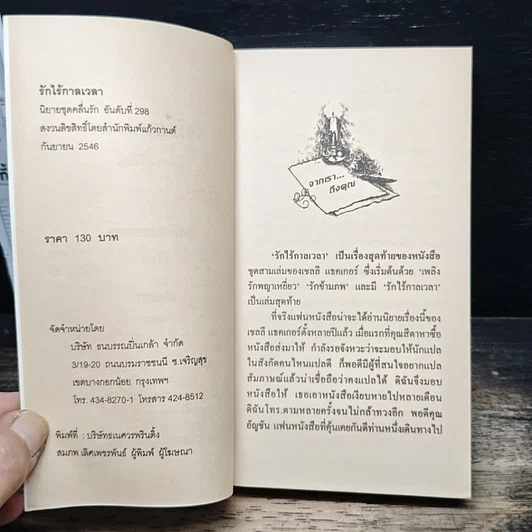 รักไร้กาลเวลา
นิยายชุดคลื่นรัก อันดับที่ 298
สงวนลิขสิทธิ์โดยสำนักพิมพ์แก้วกานต์
กันยายน 2546
ราคา 130 บาท
จัดจำหน่ายโดย
บริษัท ธนบรรณปิ่นเกล้า จำกัด
3/19-20 ถนนบรมราชชนนี ซ.เจริญสุข
เขตบางกอกน้อย กรุงเทพฯ
โทร. 434-8270-1 โทรสาร 424-8512
พิมพ์ที่ : บริษัทธเนศวรพรินติ้ง
สมภพ เลิศเพชรพันธ์ ผู้พิมพ์ ผู้โฆษณา
จากเรา...
ถึงคุณ
'รักไร้กาลเวลา' เป็นเรื่องสุดท้ายของหนังสือ
ชุดสามเล่มของเชลลี แธคเกอร์ ซึ่งเริ่มต้นด้วย 'เพลิง
รักพญาเหยี่ยว' 'รักข้ามภพ' และมี 'รักไร้กาลเวลา'
เป็นเล่มสุดท้าย
ที่จริงแฟนหนังสือน่าจะได้อ่านนิยายเรื่องนี้ของ
เชลลี แธคเกอร์ตั้งหลายปีแล้ว เมื่อแรกที่คุณสีดาหาซื้อ
หนังสือส่งมาให้ กำลังรอจังหวะว่าจะมอบให้นักแปล
ในสังกัดคนไหนแปลดี ก็พอดีมีผู้ที่สนใจอยากแปล
สัมภาษณ์แล้วน่าเชื่อถือว่าคงแปลได้ ดิฉันจึงมอบ
หนังสือให้ เธอเอาหนังสือเงียบหายไปหลายเดือน
ดิฉันโทร.ตามหลายครั้งจนไม่กล้าทวงอีก พอดีคุณ
อัญชัน แฟนหนังสือที่คุ้นเคยกันดีท่านหนึ่งเดินทางไป